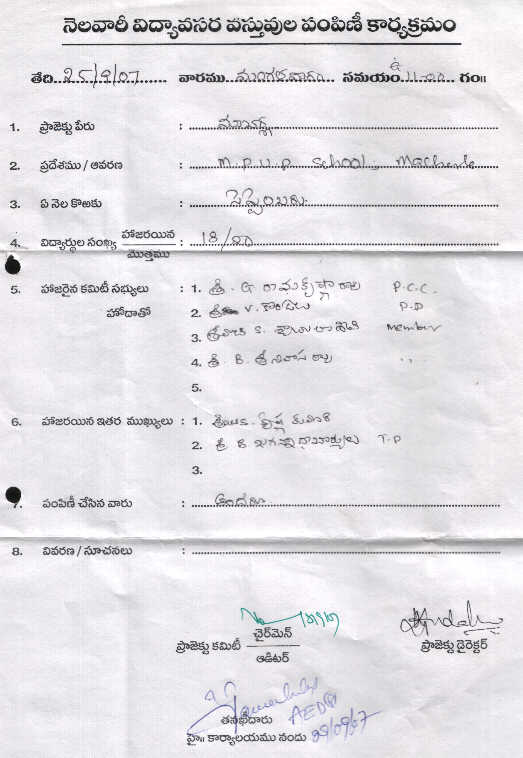 నెలవారీ విద్యావసర వస్తువుల పంపిణీ కార్యక్రమం
తేది 25/9/07 వారము మంగళవారం సమయం ఉ 11-00 గం॥
1. ప్రాజెక్టు పేరు :
2. ప్రదేశము / ఆవరణ : M.P.U.P School,
3. ఏ నెల కొఱకు : సెప్టెంబరు
4. విద్యార్థుల సంఖ్య హాజరయిన / మొత్తము : 18/20
5. హాజరైన కమిటీ సభ్యులు హోదాతో : 1. శ్రీ. G. రామకృష్ణా రావు P.C.C.
2. శ్రీ V. P.D
3. శ్రీమతి S. Member
4. శ్రీ. B. శ్రీనివాస రావు ,,
5.
6. హాజరయిన ఇతర ముఖ్యులు : 1. కుమారి
2. శ్రీ B. T.P
3.
7. పంపిణీ చేసిన వారు : అందరూ
8. వివరణ / సూచనలు :
ప్రాజెక్టు కమిటీ ఛైర్‌మెన్ / ఆడిటర్
ప్రాజెక్టు డైరెక్టర్
AEDP
తనఖీదారు
హై॥ కార్యాలయము నందు 29/09/07